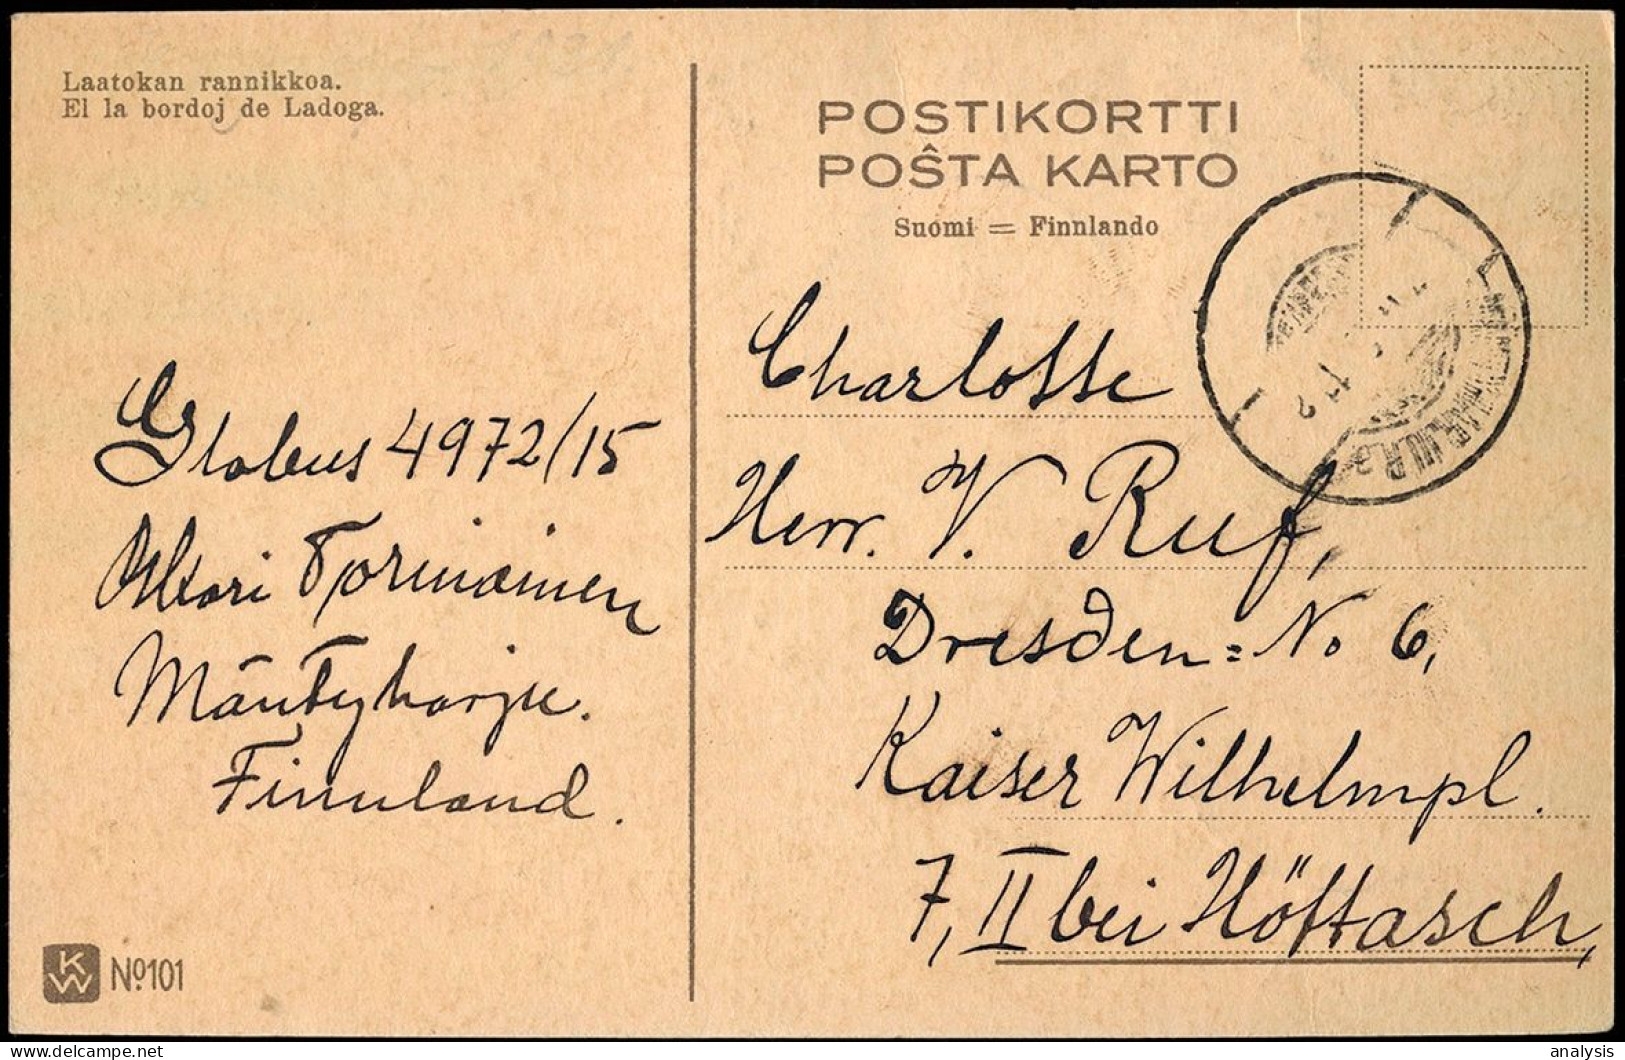 Laatokan rannikkoa.
El la bordoj de Ladoga.
POSTIKORTTI
POŜTA KARTO
Suomi = Finnlando
Globus 4972/15
Tormainen
Mäntyharju.
Finnland.
Charlotte
Herr. V. Ruf,
Dresden=No 6,
Kaiser Wilhelmpl.
7, II bei Höftasch,
KW No101
analysis